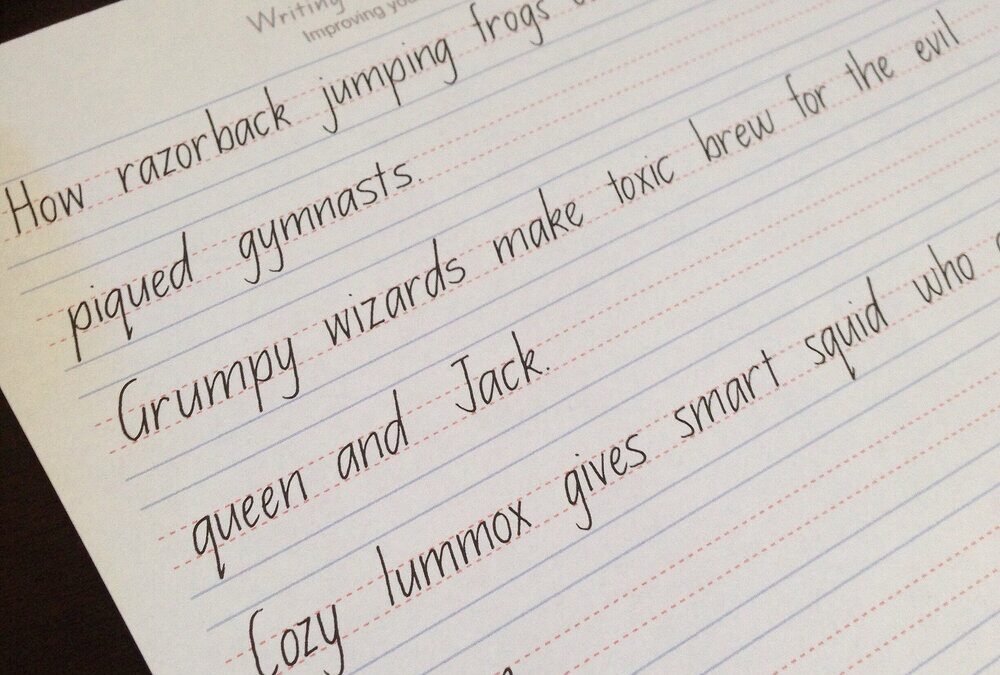 Writing
Improving
How razorback jumping frogs
piqued gymnasts.
Grumpy wizards make toxic brew for the evil
queen and Jack.
Cozy lummox gives smart squid who